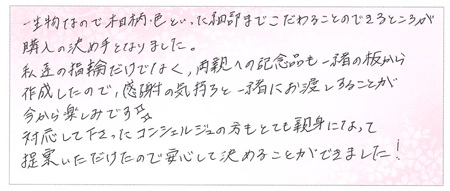 一生物なので木目柄・色といった細部までこだわることのできるところが
購入の決め手となりました。
私達の指輪だけでなく、両親への記念品も一緒の板から
作成したので、感謝の気持ちと一緒にお渡しすることが
今から楽しみです☆
対応して下さったコンシェルジュの方もとても親身になって
提案いただけたので安心して決めることができました!